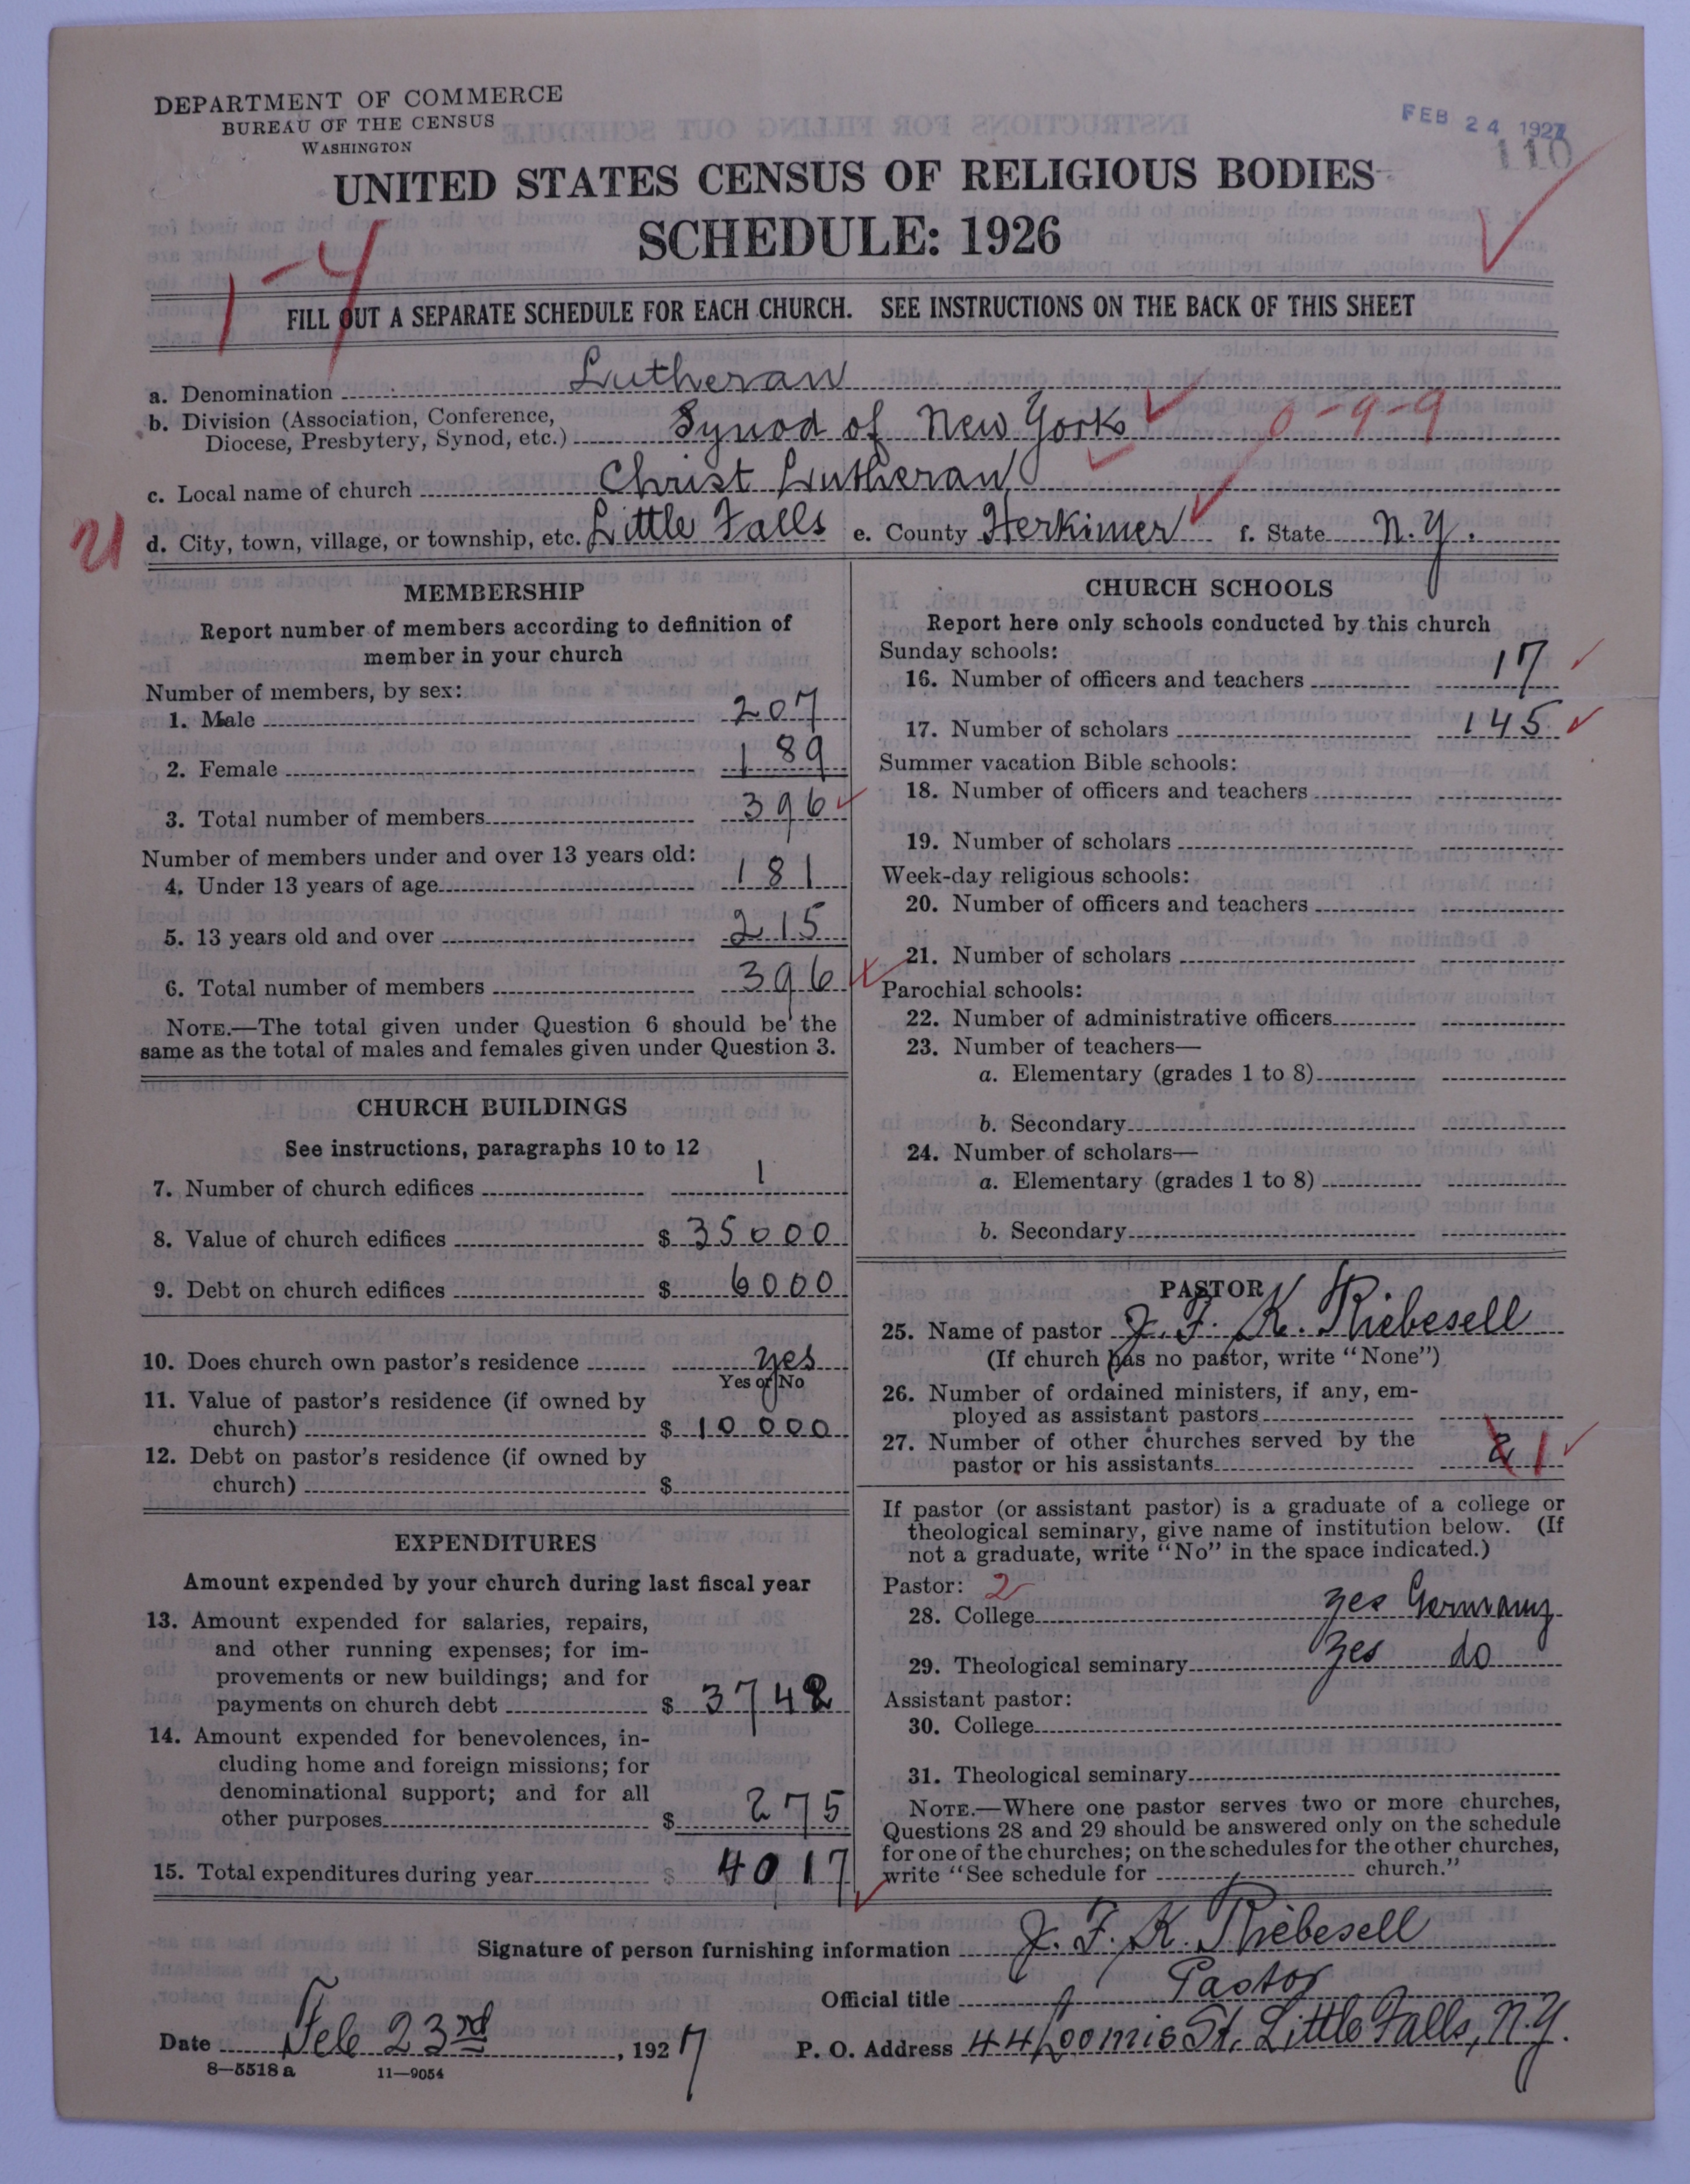 DEPARTMENT OF COMMERCE
BUREAU OF THE CENSUS
WASHINGTON
FEB 24 1927
110
UNITED STATES CENSUS OF RELIGIOUS BODIES
SCHEDULE: 1926
1-4
FILL OUT A SEPARATE SCHEDULE FOR EACH CHURCH. SEE INSTRUCTIONS ON THE BACK OF THIS SHEET
a. Denomination Lutheran
b. Division (Association, Conference,
Diocese, Presbytery, Synod, etc.) Synod of New York 0-9-9
c. Local name of church Christ Lutheran
d. City, town, village, or township, etc. Little Falls e. County Herkimer f. State N.Y.
MEMBERSHIP
Report number of members according to definition of
member in your church
Number of members, by sex:
1. Male 207
2. Female 189
3. Total number of members 396
Number of members under and over 13 years old:
4. Under 13 years of age 181
5. 13 years old and over 215
6. Total number of members 396
NOTE.—The total given under Question 6 should be the
same as the total of males and females given under Question 3.
CHURCH BUILDINGS
See instructions, paragraphs 10 to 12
7. Number of church edifices 1
8. Value of church edifices $ 35000
9. Debt on church edifices $ 6000
10. Does church own pastor's residence yes
Yes or No
11. Value of pastor's residence (if owned by
church) $ 10000
12. Debt on pastor's residence (if owned by
church) $
EXPENDITURES
Amount expended by your church during last fiscal year
13. Amount expended for salaries, repairs,
and other running expenses; for im-
provements or new buildings; and for
payments on church debt $ 3742
14. Amount expended for benevolences, in-
cluding home and foreign missions; for
denominational support; and for all
other purposes $ 275
15. Total expenditures during year $ 4017
CHURCH SCHOOLS
Report here only schools conducted by this church
Sunday schools:
16. Number of officers and teachers 17
17. Number of scholars 145
Summer vacation Bible schools:
18. Number of officers and teachers
19. Number of scholars
Week-day religious schools:
20. Number of officers and teachers
21. Number of scholars
Parochial schools:
22. Number of administrative officers
23. Number of teachers—
a. Elementary (grades 1 to 8)
b. Secondary
24. Number of scholars—
a. Elementary (grades 1 to 8)
b. Secondary
PASTOR
25. Name of pastor J. F. K. Riebesell
(If church has no pastor, write "None")
26. Number of ordained ministers, if any, em-
ployed as assistant pastors
27. Number of other churches served by the
pastor or his assistants 2 1
If pastor (or assistant pastor) is a graduate of a college or
theological seminary, give name of institution below. (If
not a graduate, write "No" in the space indicated.)
Pastor: 2
28. College yes Germany
29. Theological seminary yes do
Assistant pastor:
30. College
31. Theological seminary
NOTE.—Where one pastor serves two or more churches,
Questions 28 and 29 should be answered only on the schedule
for one of the churches; on the schedules for the other churches,
write "See schedule for church."
Signature of person furnishing information J. F. K. Riebesell
Official title Pastor
Date Feb 23rd, 1927 P. O. Address 44 Loomis St. Little Falls, N.Y.
8—5518 a 11—9054